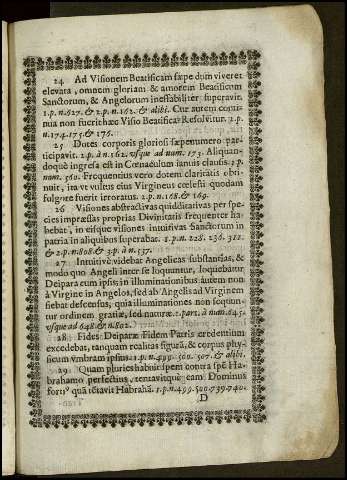 24 Ad Visionem Beatificam sæpe dum viveret
elevata, omnem gloriam & amorem Beatificum
Sanctorum, & Angelorum ineffabiliter superavit.
1.p.n.627. & 2.p.n.162. & alibi. Cur autem conti-
nua non fuerit hæc Visio Beatifica? Resolvitur. 2.p.
n.174.175.& 176.
25 Dotes corporis gloriosi sæpenumero par-
ticipavit. 2.p. à n.162. vsque ad num. 173. Aliquan-
doquè ingressa est in Cœnaculum ianuis clausis. 3.p.
num. 560. Frequentius vero dotem claritatis obti-
nuit, ita vt vultus eius Virgineus cœlesti quodam
fulgore fuerit irroratus. 2.p.n.168.& 169.
26 Visiones abstractivas quidditativas per spe-
cies impræssas proprias Divinitatis frequenter ha-
bebat, in eisque visiones intuitivas Sanctorum in
patria in aliquibus superabat. 1.p.n.228. 236. 312.
& 2.p.n.808.& 3.p. à n.537.
27 Intuitivè videbat Angelicas substantias, &
modo quo Angeli inter se loquuntur, loquebatur
Deipara cum ipsis; in illuminationibus autem non
à Virgine in Angelos, sed ab Angelis ad Virginem
fiebat descensus, quia illuminationes non sequun-
tur ordinem gratiæ, sed naturæ. 2.part. à num.645.
vsque ad 648.& n.802.
28 Fides Deiparæ Fidem Patris credentium
excedebat, tanquam realitas figurã, & corpus phy-
sicum vmbram ipsius. 1.p.n.499. 500. 507. & alibi.
29 Quam pluries habuit spem contra spẽ Ha-
brahamo perfectius, tentavitquè eam Dominus
fortiꝰ quã tẽtavit Habrahã. 1.p.n.499.500.739.740.
D